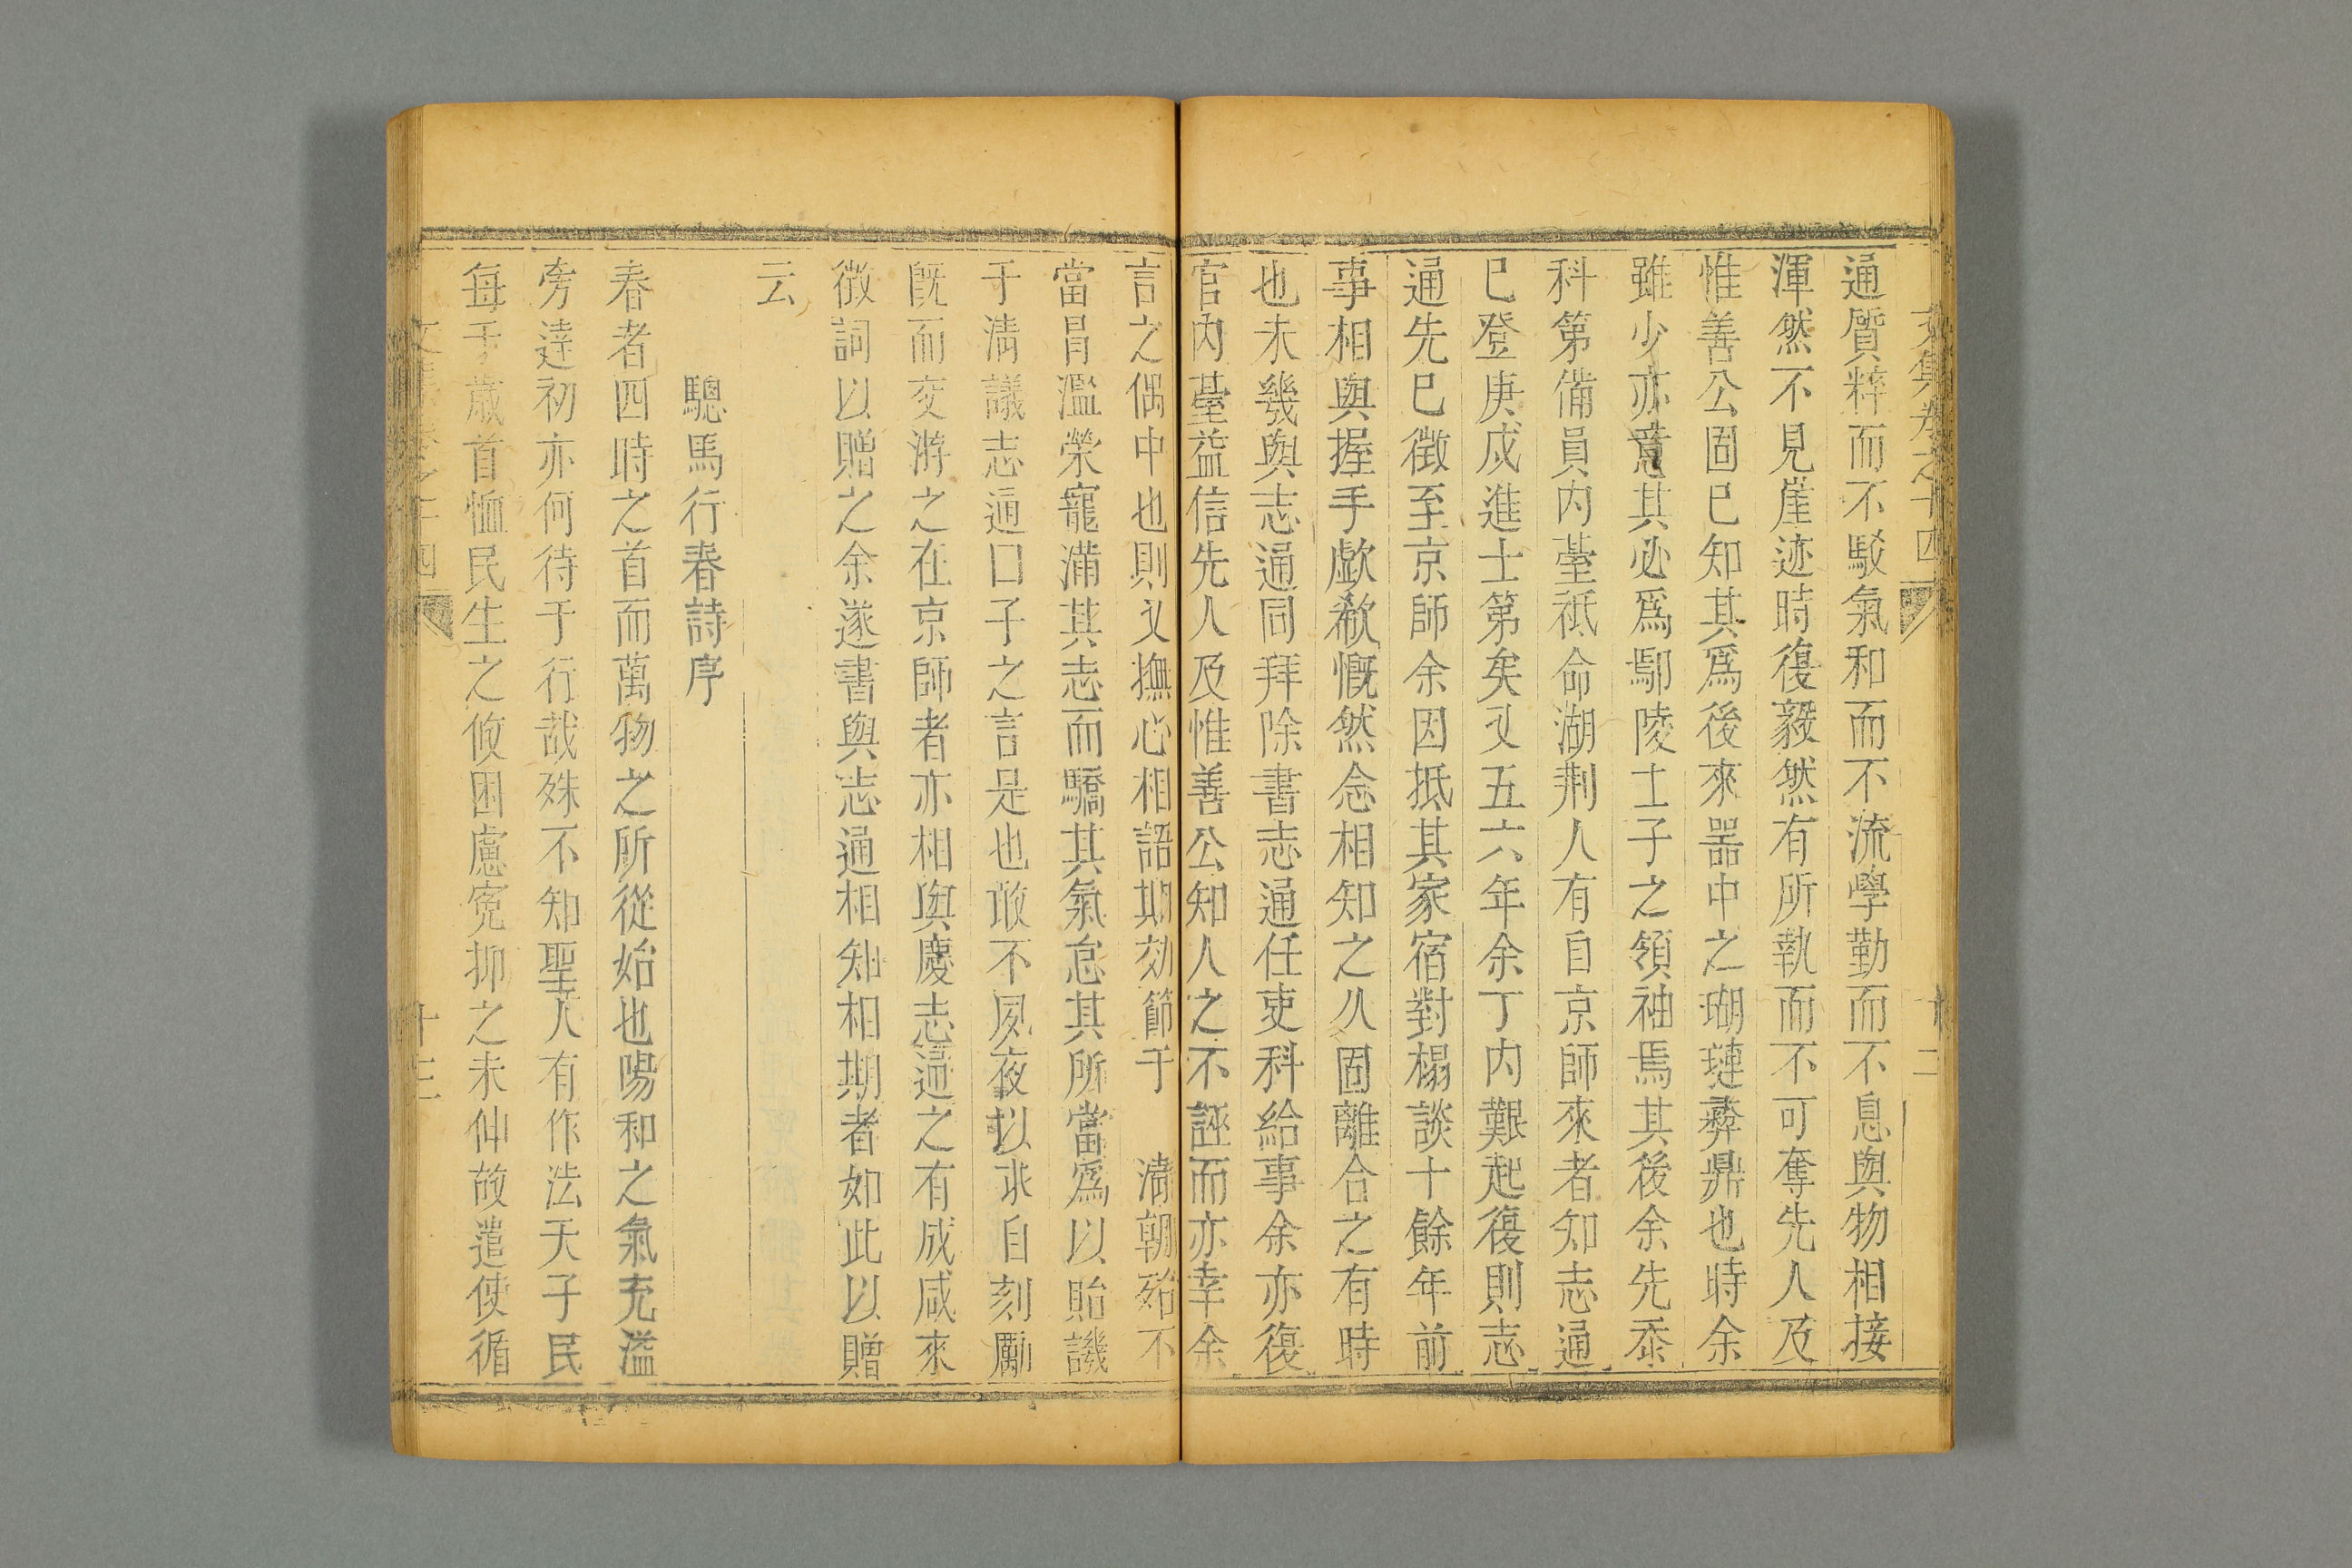 文集卷之十四
十二
通質粹而不駁氣和而不流學勤而不息與物相接
渾然不見崖迹時復毅然有所執而不可奪先人及
惟善公固已知其爲後來噐中之瑚璉彞鼎也時余
雖少亦意其必爲鄢陵士子之領袖焉其後余先忝
科第備員内䑓祗命湖荆人有自京師來者知志通
已登庚戍進士第矣又五六年余丁内艱起復則志
通先已徵至京師余因抵其家宿對榻談十餘年前
事相與握手歔欷慨然念相知之乆固離合之有時
也未幾與志通同拜除書志通任吏科給事余亦復
官内䑓益信先人及惟善公知人之不誣而亦幸余
言之偶中也則又撫心相語期効節于 清朝殆不
當冒濫榮寵滿其志而驕其氣怠其所當爲以貽譏
于清議志通口子之言是也敢不夙夜以求自刻勵
旣而交游之在京師者亦相與慶志通之有成咸來
徵詞以贈之余遂書與志通相知相期者如此以贈
云
驄馬行春詩序
春者四時之首而萬物之所從始也陽和之氣充溢
旁達初亦何待于行哉殊不知聖人有作法天子民
每于歲首恤民生之攸困慮寃抑之未伸故遣使循
文集卷之十四
十三